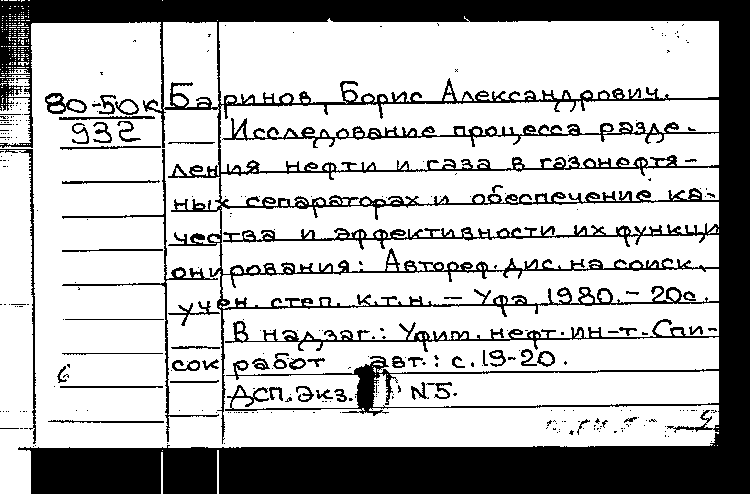 80-50к Баринов, Борис Александрович.
932 Исследование процесса разде-
ления нефти и газа в газонефтя-
ных сепараторах и обеспечение ка-
чества и эффективности их функци
онирования: Автореф. дис. на соиск.
учен. степ. к.т.н. – Уфа, 1980. – 20с.
В надзаг.: Уфим. нефт. ин-т. Спи-
сок работ авт.: с. 19-20.
ДСП. Экз. N5.